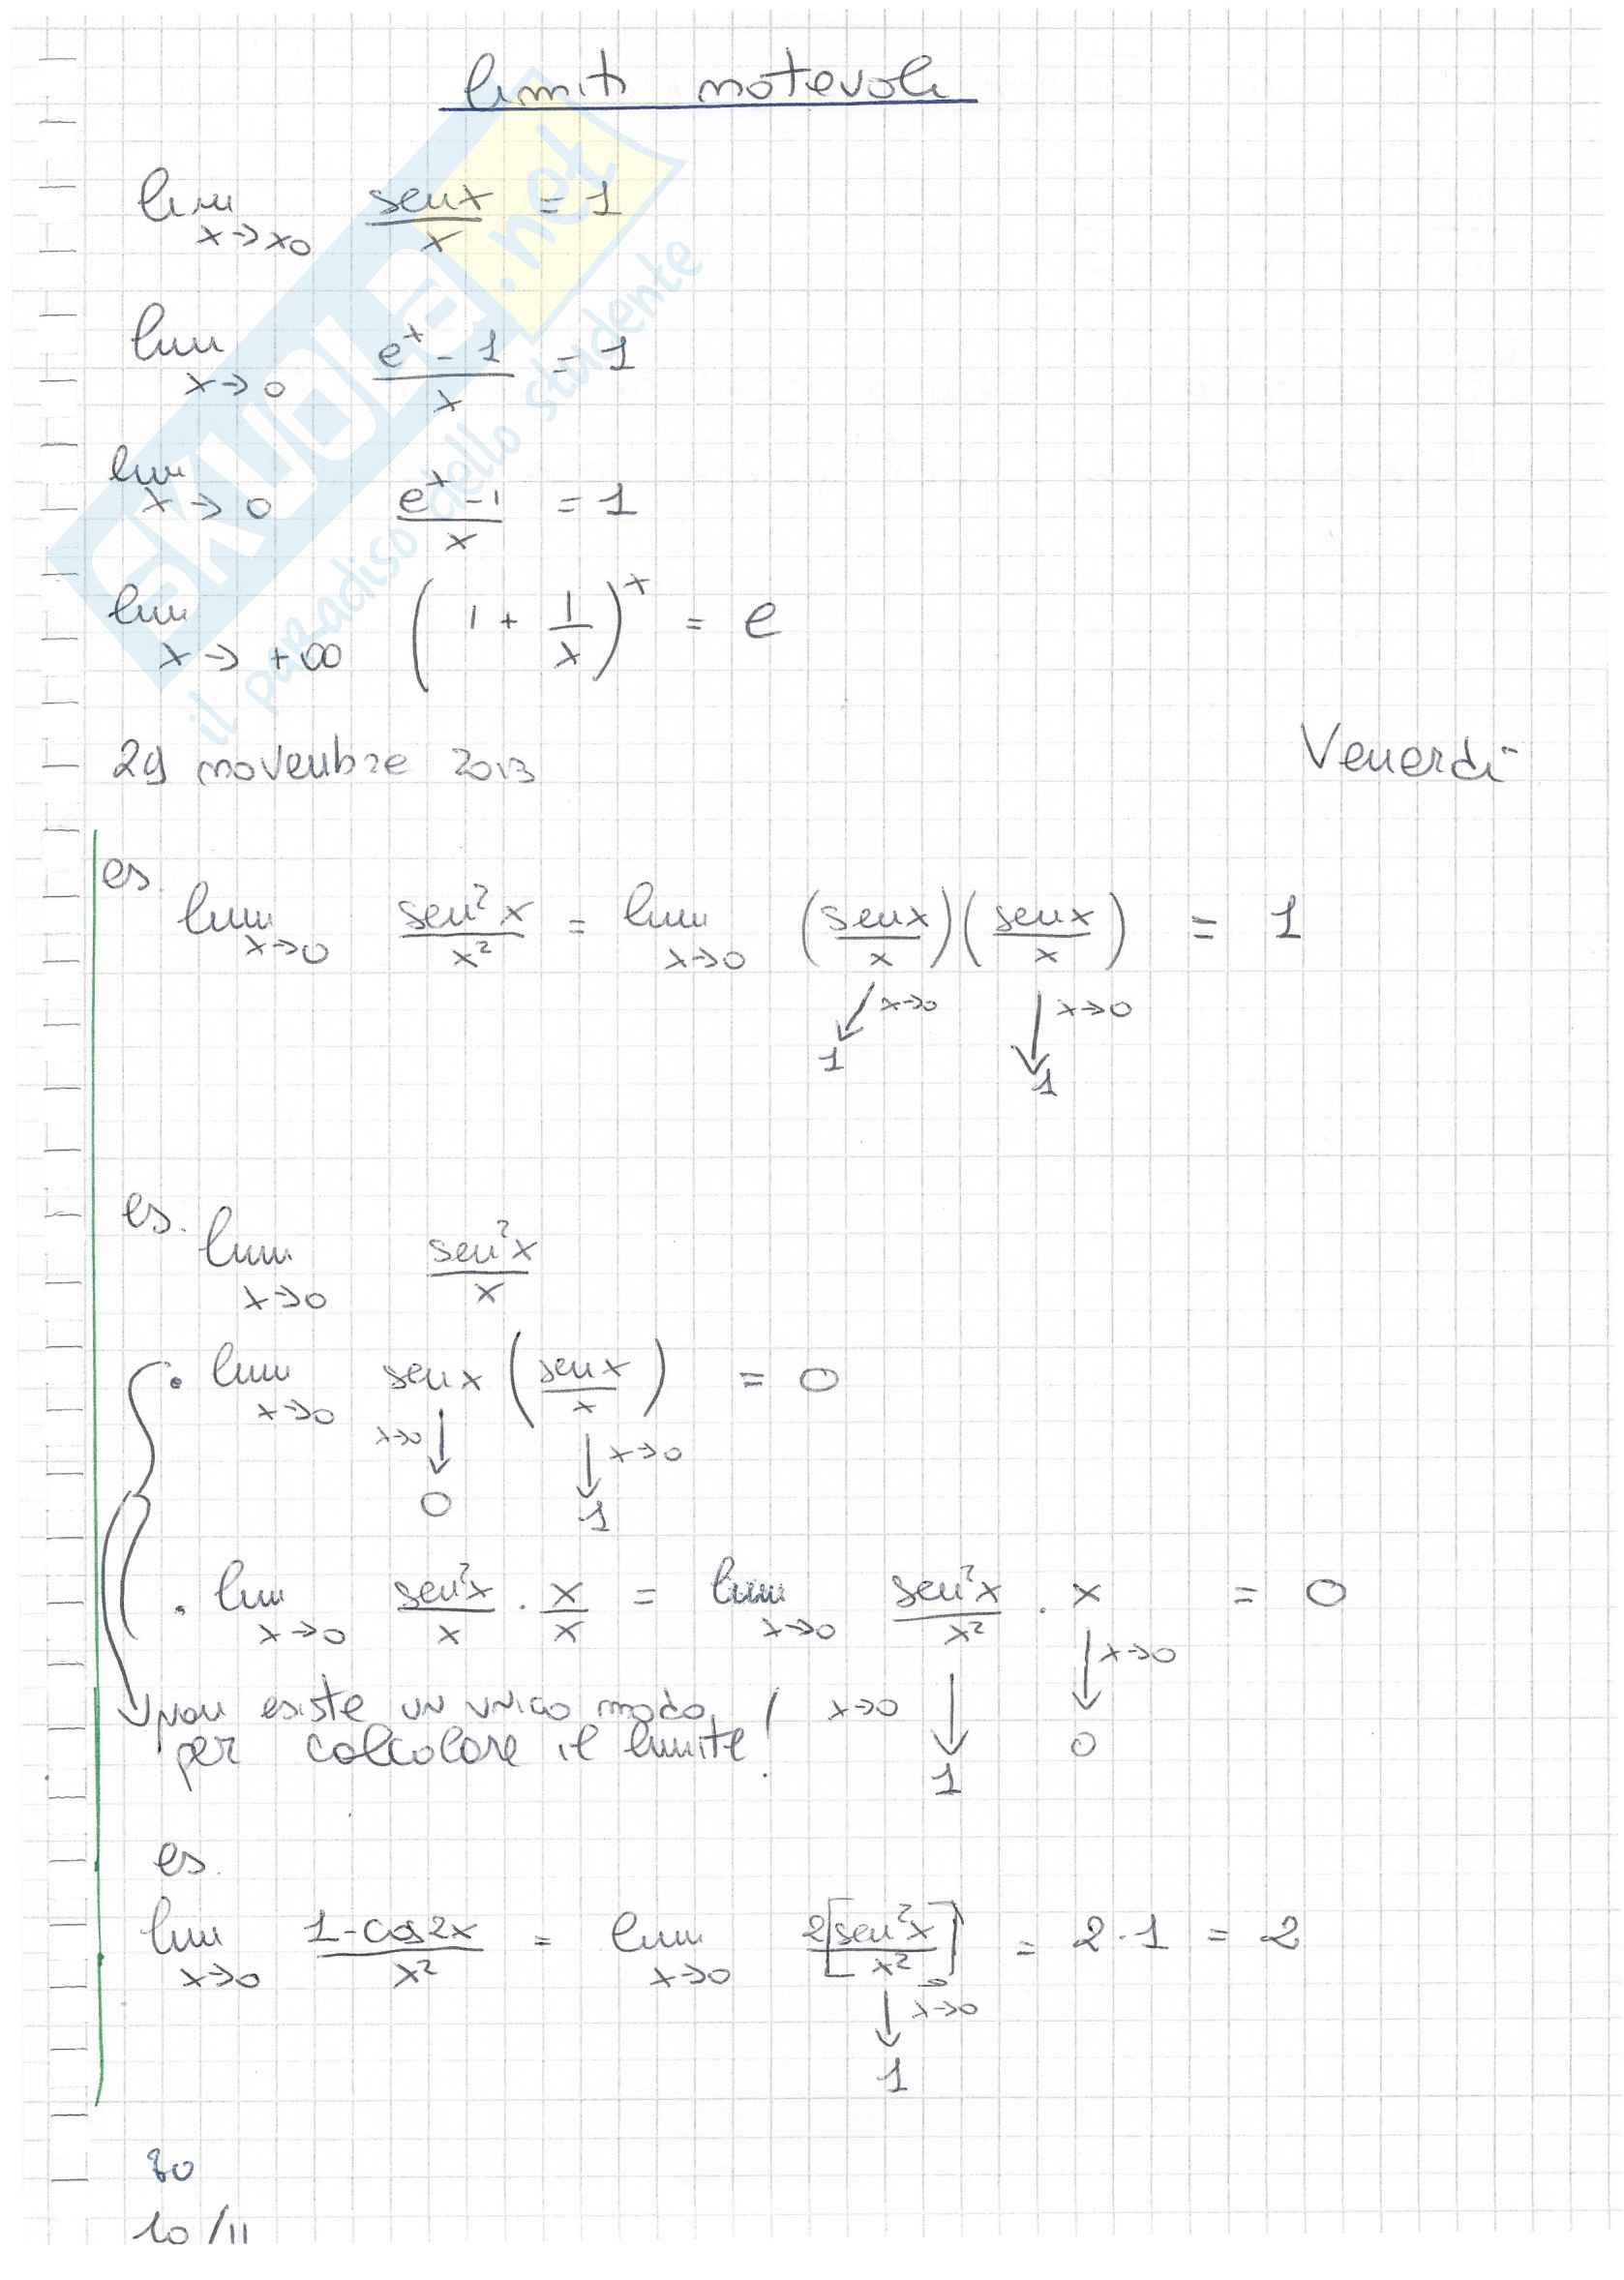 limiti notevoli
lim x→x0 senx/x = 1
lim x→0 (e^x - 1)/x = 1
lim x→0 (e^x - 1)/x = 1
lim x→+∞ (1 + 1/x)^x = e
29 novembre 2013 Venerdì
es.
lim x→0 sen²x/x² = lim x→0 (senx/x)(senx/x) = 1
x→0 x→0
1 1
es.
lim x→0 sen²x/x
· lim x→0 senx (senx/x) = 0
x→0 x→0
0 1
· lim x→0 sen²x/x · x/x = lim x→0 sen²x/x² · x = 0
x→0
non esiste un unico modo x→0
per calcolare il limite! 0
1
es.
lim x→0 (1-cos2x)/x² = lim x→0 2[sen²x/x²] = 2·1 = 2
x→0
1
10/11
SKUOLA.net
il paradiso dello studente